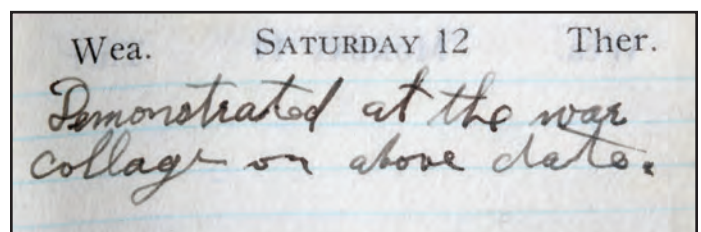 Wea. SATURDAY 12 Ther.
Demonstrated at the war
collage on above date.